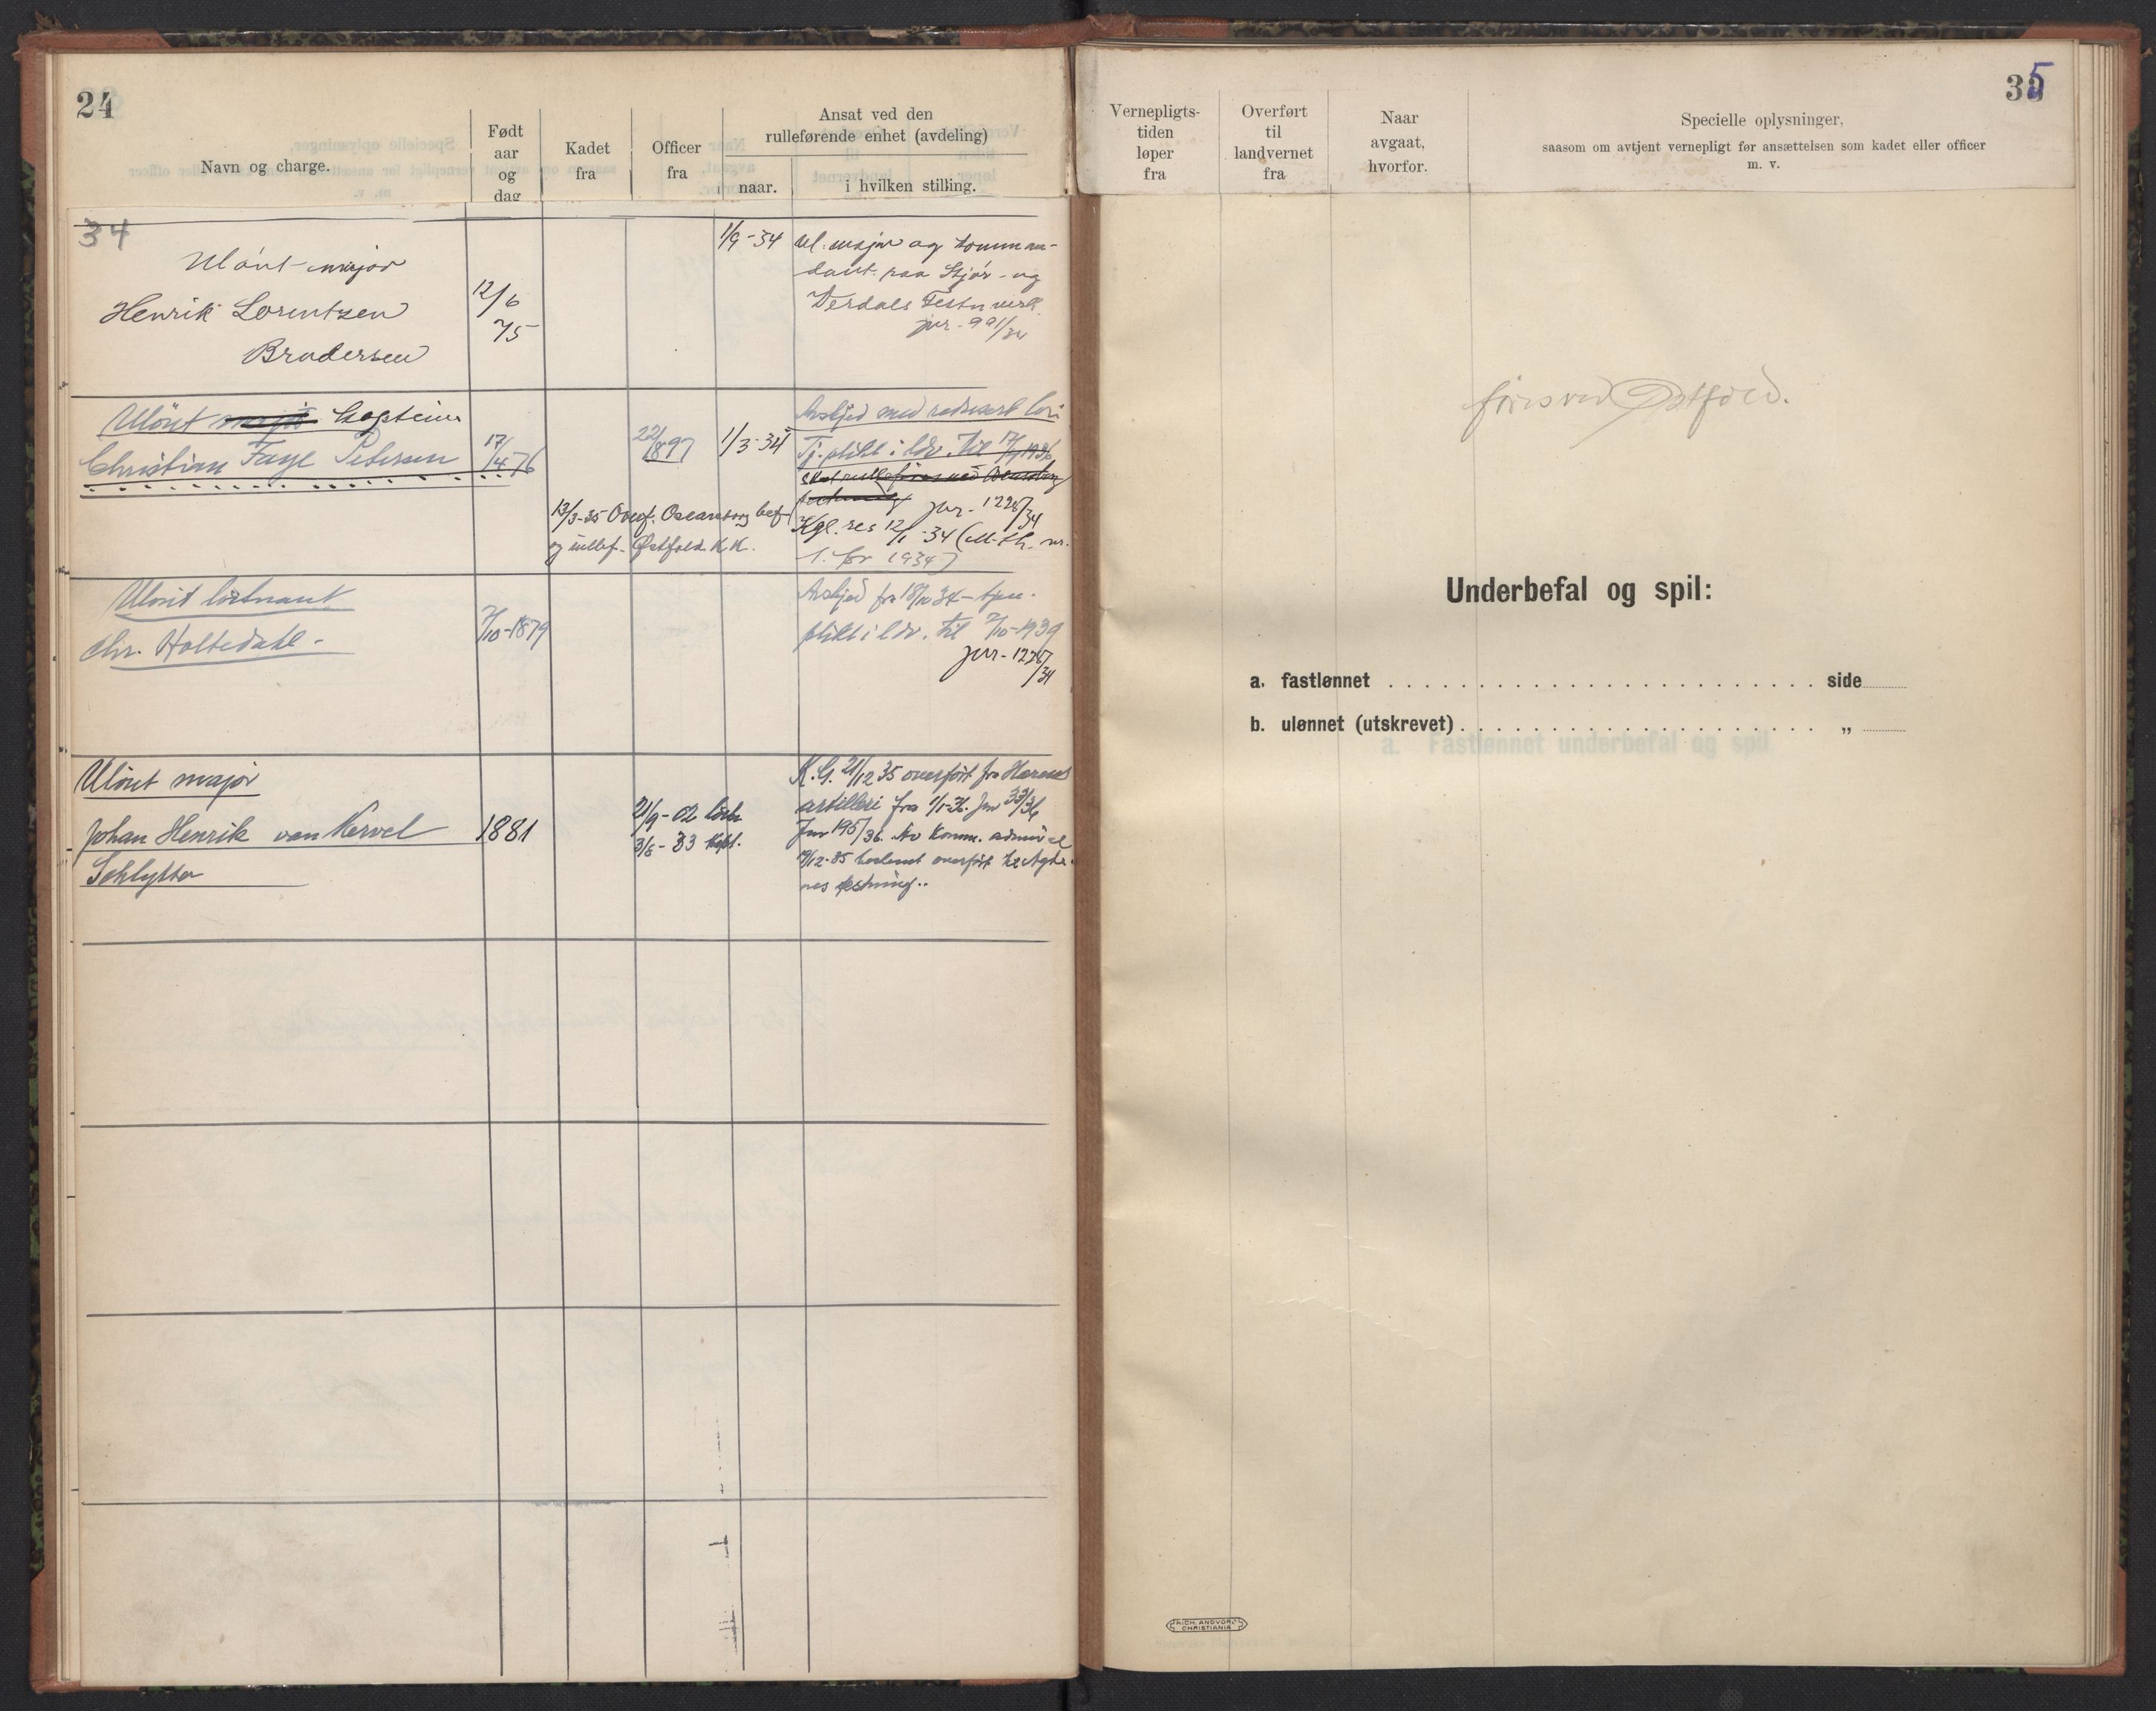 24
Navn og charge.
Født
aar
og
dag
Kadet
fra
Officer
fra
Ansat ved den
rulleførende enhet (avdeling)
naar.
i hvilken stilling.
34
Ulønt major
Henrik Lorentzen
Brodersen
12/6
75
1/9-34
Ul. major og komman-
dant paa Stjør- og
Verdals Festn.verk.
jnr. 991/34
Ulönt major Captein
Christian Faye Petersen
17/4 76
22/8 97
1/3-34
Avskjed med
Tj.plikt i ldv. til 17/4 1936
jnr. 1228/34
Kgl. res 12/1-34 (
1. for 1934)
13/3-35 Overf. Oscarsborg bef
og rullef. Østfold K.K.
Ulönt löitnant
Chr. Holtedahl -
7/10-1879
Avskjed fra 18/10 34 - tjen.
plikt i ldv. til 7/10-1939
jnr. 1228/34
Ulönt major
Johan Henrik van Kervel
Schlytter
1881
21/9-02 löitn
3/8-33 kapt.
K.G. 21/12 35 overført fra Hærens
artilleri fra 1/1-36. Jnr 33/36
Jnr 195/36. Av Komm. admiral
12-35 overført til Agde
nes festning..
35
Vernepligts-
tiden
løper
fra
Overført
til
landvernet
fra
Naar
avgaat,
hvorfor.
Specielle oplysninger,
saasom om avtjent vernepligt før ansættelsen som kadet eller officer
m. v.
føres ved Østfold.
Underbefal og spil:
a. fastlønnet . . . . . . . . . . . . . . . . . . . . . . . . side
b. ulønnet (utskrevet) . . . . . . . . . . . . . . . . . . . . „
a. Fastlønnet underbefal og spil
RICH. ANDVORD
CHRISTIANIA